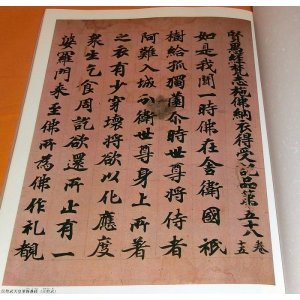 賢愚經梵志施佛納衣得受記品第五十八 卷十五
如是我聞一時佛在舍衛國祇
樹給孤獨園尒時世尊將侍者
阿難入城分衛世尊身上所著
之衣有少穿壞將欲以化應度
衆生乞食周訖欲還所止有一
婆羅門來至佛所為佛作礼覩